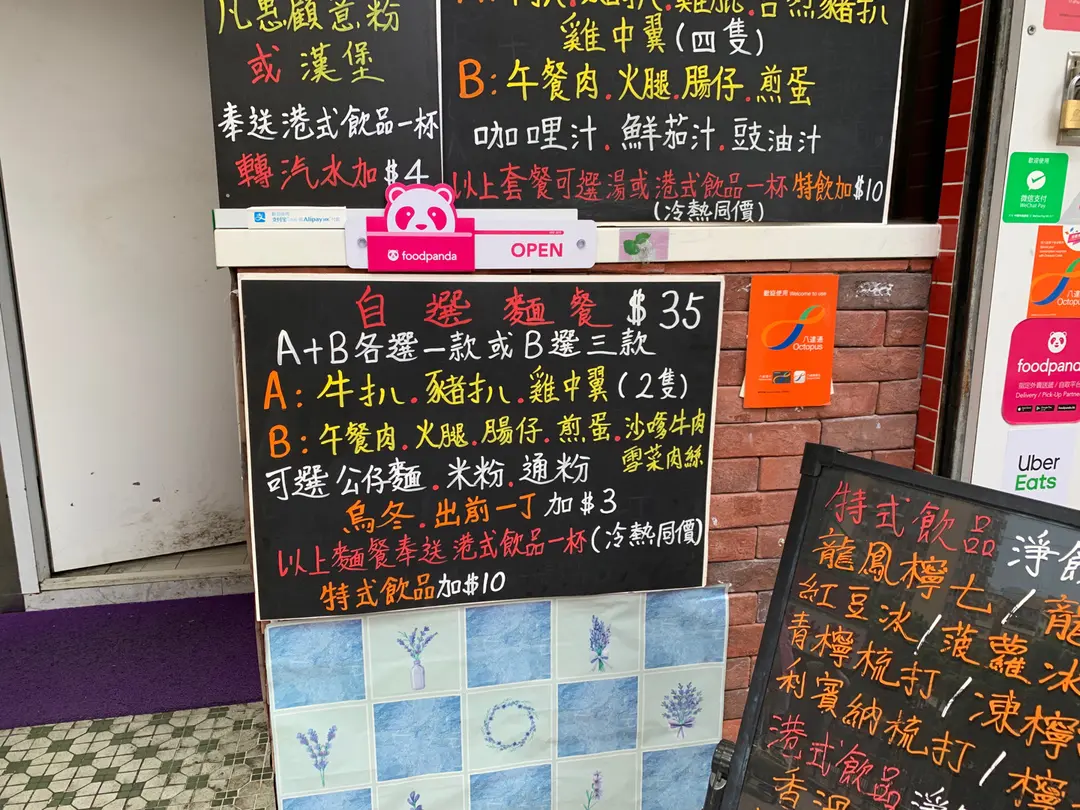 凡惠顧意粉
或漢堡
奉送港式飲品一杯
轉汽水加$4
雞中翼(四隻)
B:午餐肉.火腿.腸仔.煎蛋
咖哩汁.鮮茄汁.豉油汁
以上套餐可選湯或港式飲品一杯 特飲加$10
(冷熱同價)
foodpanda
OPEN
自選麵餐 $35
A+B各選一款或B選三款
A:牛扒.豬扒.雞中翼(2隻)
B:午餐肉.火腿.腸仔.煎蛋.沙嗲牛肉
雪菜肉絲
可選公仔麵.米粉.通粉
烏冬.出前一丁加$3
以上麵餐奉送港式飲品一杯(冷熱同價)
特式飲品加$10
歡迎使用 Welcome to use
八達通
Octopus
歡迎使用
微信支付
WeChat Pay
foodpanda
Delivery / Pick-Up Partner
Uber
Eats
特式飲品 淨飲
龍鳳檸七/龍
紅豆冰/菠蘿冰
青檸梳打/凍檸
利賓納梳打/檸
港式飲品